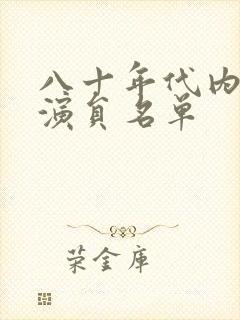 八十年代内
演员名单
荣金库